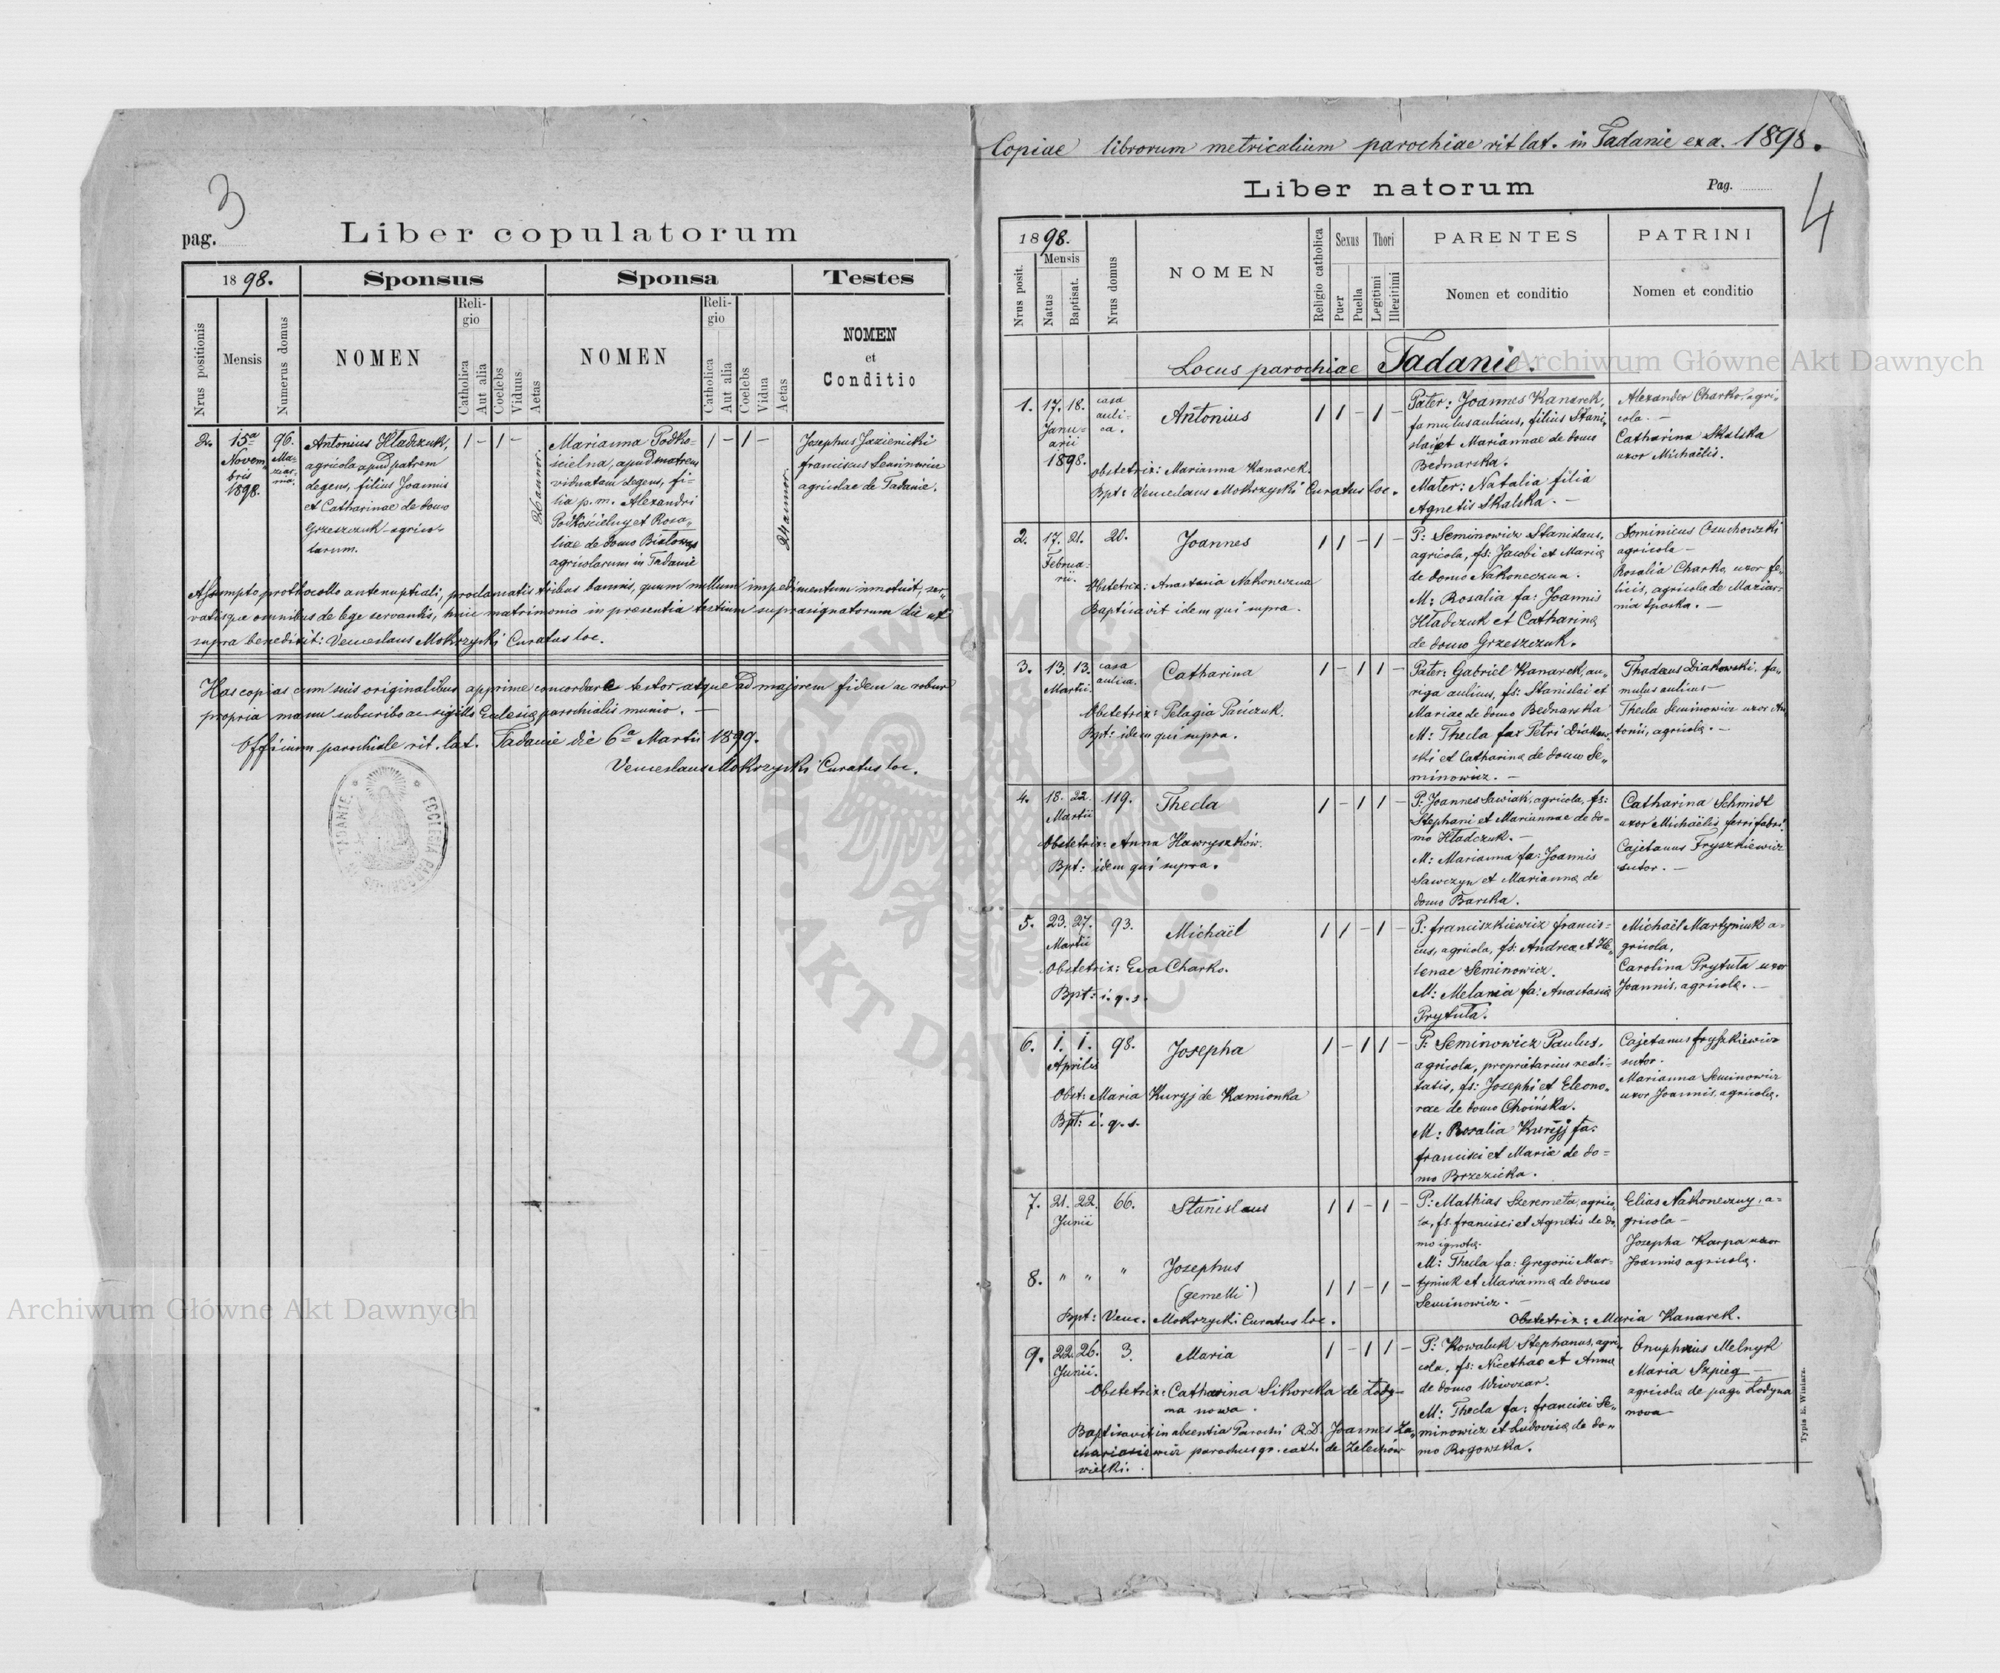 3
pag.
Liber copulatorum
1898.
Sponsus
Sponsa
Testes
Nrus positionis
Mensis
Numerus domus
NOMEN
Religio
Catholica
Aut alia
Coelebs
Viduus
Aetas
NOMEN
Religio
Catholica
Aut alia
Coelebs
Vidua
Aetas
NOMEN
et
Conditio
2.
15a
Novem
bris
1898.
96.
Ma-
ziar-
nia.
Antonius Hładczuk,
agricola apud patrem
degens, filius Joannis
et Catharinae de domo
Grzeszczuk agrico-
larum.
1 - 1 -
26 annor.
Marianna Podko-
ścielna, apud matrem
viduatam degens, fi-
lia p. m. Alexandri
Podkościelny et Rosa-
liae de domo
agricolarum in Tadanie
1 - 1 -
24 annor.
Josephus Jazienicki
franciscus Seminowicz
agricolae de Tadanie.
Assumpto prothocollo antenuptiali, proclamatis tribus bannis, quum nullum impedimentum innotuit, ser-
vatisque omnibus de lege servandis, huic matrimonio in presentia testium suprasignatorum die ut
supra benedixit: Venceslaus Mokrzycki Curatus loc.
Has copias cum suis originalibus apprime concordare testor atque ad majorem fidem ac robur
propria manu subscribo ac sigillo Ecclesiae parochialis munio. —
Officium parochiale rit. lat. Tadanie die 6a Martii 1899.
Venceslaus Mokrzycki Curatus loc.
ECCLESIA PAROCHIALIS IN TADANIE
Copiae librorum metricalium parochiae rit lat. in Tadanie ex a. 1898.
Liber natorum
Pag.
4
1898.
Nrus posit.
Mensis
Natus
Baptisat.
Nrus domus
NOMEN
Religio catholica
Sexus
Puer
Puella
Thori
Legitimi
Illegitimi
PARENTES
Nomen et conditio
PATRINI
Nomen et conditio
Locus parochiae Tadanie.
1. 17. 18.
Janu-
arii
1898.
casa
auli-
ca.
Antonius
1 1 - 1 -
Obstetrix: Marianna Kanarek.
Bpt: Venceslaus Mokrzycki Curatus loc.
Pater: Joannes Kanarek,
famulus aulicus, filius Stani-
slai et Mariannae de domo
Bednarska.
Mater: Natalia filia
Agnetis Skalska. —
Alexander Charko, agri-
cola. —
Catharina Skalska
uxor Michaëlis.
2. 17. 21.
Februa-
rii.
20.
Joannes
1 1 - 1 -
Obstetrix: Anastasia Nakoneczna
Baptisavit idem qui supra.
P: Seminowicz Stanislaus,
agricola, fs: Jacobi et Mariae
de domo Nakoneczna.
M: Rosalia fa: Joannis
Hładczuk et Catharinae
de domo Grzeszczuk.
Dominicus Czuchowski
agricola —
Rosalia Charko, uxor fe-
licis, agricola de Maziar-
nia
3. 13. 13.
Martii.
casa
aulica.
Catharina
1 - 1 1 -
Obstetrix: Pelagia Pańczuk.
Bpt: idem qui supra.
Pater: Gabriel Kanarek, au-
riga aulicus, fs: Stanislai et
Mariae de domo Bednarska
M: Thecla fa: Petri Diakow-
ski et Catharinae de domo Se-
minowicz. —
Thadaeus Diakowski, fa-
mulus aulicus —
Thecla Seminowicz uxor An
tonii, agricolae. —
4. 18. 22.
Martii
119.
Thecla
1 - 1 1 -
Obstetrix: Anna Hawryszków.
Bpt: idem qui supra.
P: Joannes Sawiak, agricola, fs:
Stephani et Mariannae de do-
mo Hładczuk. —
M: Marianna fa: Joannis
Sawczyn et Mariannae de
domo Barska.
Catharina Schmidt
uxor Michaëlis ferrifabri.
Cajetanus Fryszkiewicz
sutor. —
5. 23. 27.
Martii
93.
Michaël
1 1 - 1 -
Obstetrix: Eva Charko.
Bpt: i. q. s.
P: franciszkiewicz francis-
cus, agricola, fs: Andreae et He-
lenae Seminowicz.
M: Melania fa: Anastasiae
Prytuła.
Michaël Martyniuk a-
gricola,
Carolina Prytuła uxor
Joannis, agricolae. —
6. 1. 1.
Aprilis
98.
Josepha
1 - 1 1 -
Obst: Maria Kuryj de Kamionka
Bpt: i. q. s.
P: Seminowicz Paulus,
agricola, proprietarius reali-
tatis, fs: Josephi et Eleono-
rae de domo Choińska.
M: Rosalia Kuryj fa:
francisci et Mariae de do-
mo Brzezicka.
Cajetanus fryszkiewicz
sutor.
Marianna Seminowicz
uxor Joannis, agricolae.
7. 21. 22.
Junii
66.
Stanislaus
1 1 - 1 -
8. " " "
Josephus
(gemelli)
1 1 - 1 -
P: Mathias Szeremeta, agrico-
la, fs. francisci et Agnetis de do
mo ignota.
M: Thecla fa: Gregorii Mar-
tyniuk et Mariannae de domo
Seminowicz. —
Elias Nakoneczny, a-
gricola —
Josepha Karpa uxor
Joannis agricolae.
Bpt: Venc. Mokrzycki Curatus loc.
Obstetrix: Maria Kanarek.
9. 22. 26.
Junii.
3.
Maria
1 - 1 1 -
Obstetrix: Catharina Sikorska de Łody-
na nowa.
Baptisavit in absentia Parochi R.D. Joannes Za-
chariasiewicz parochus gr. cath. de Żelechów
wielki.
P: Kowaluk Stephanus, agri-
cola, fs: Nicethae et Anna
de domo Wiwczar.
M: Thecla fa: francisci Se-
minowicz et Ludovicae de do-
mo Rogowska.
Onuphrius Melnyk
Maria Szpieg
agricolae de pag. Łodyna
nova —
Typis E. Winiarz.
Archiwum Główne Akt Dawnych
Archiwum Główne Akt Dawnych
ARCHIWUM GŁÓWNE AKT DAWNYCH